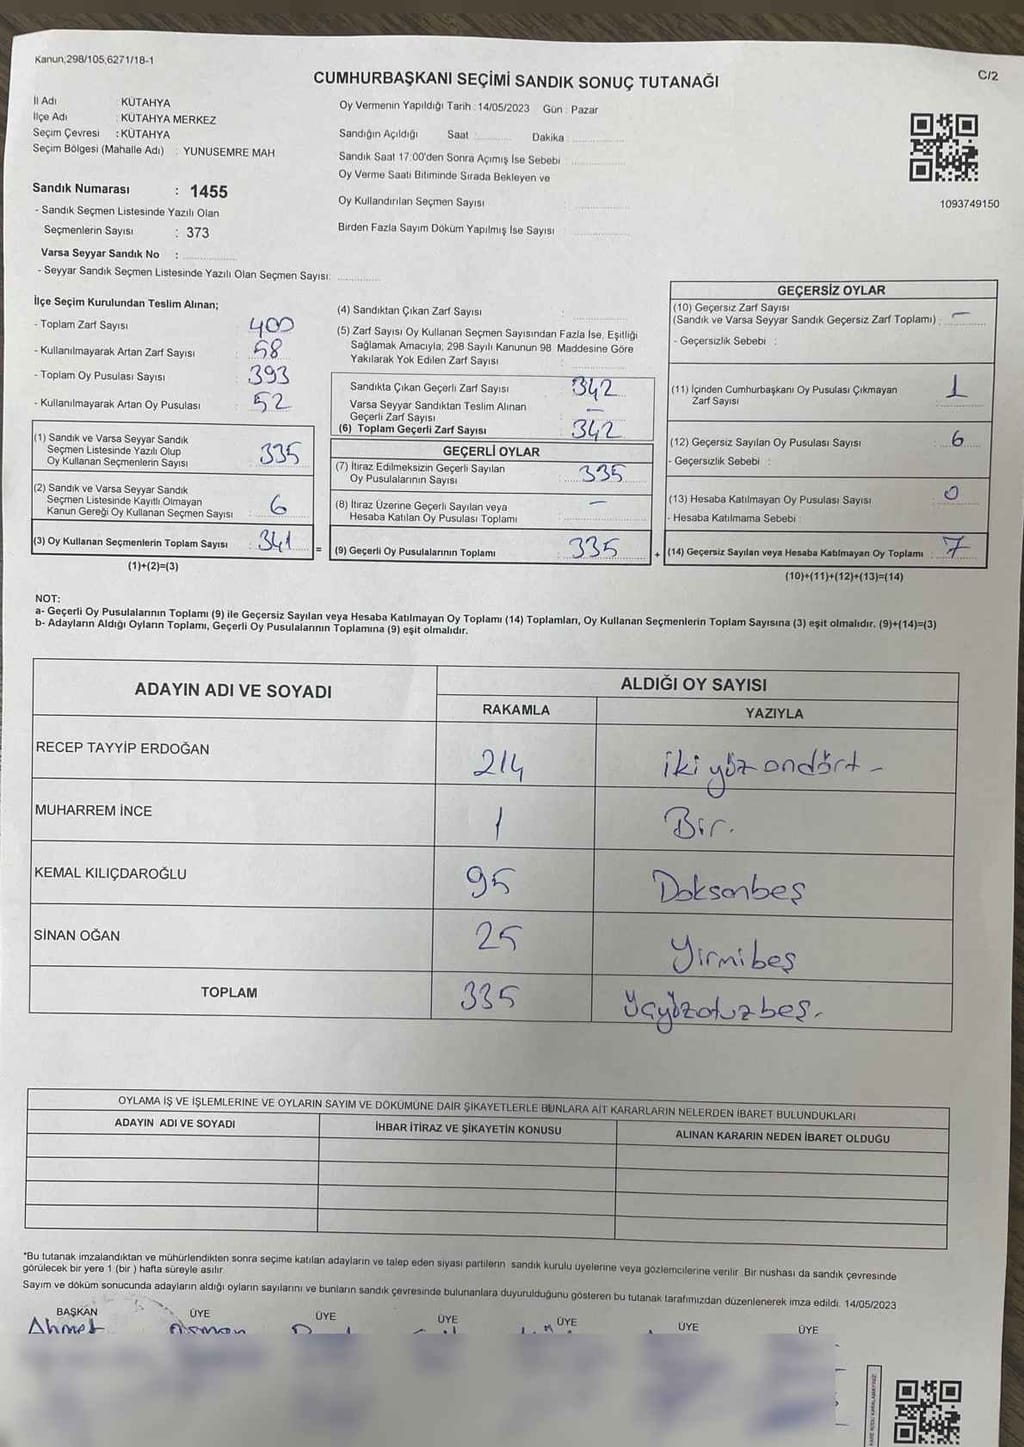 Kanun;298/105,6271/18-1
C/2
CUMHURBAŞKANI SEÇİMİ SANDIK SONUÇ TUTANAĞI
İl Adı : KÜTAHYA
İlçe Adı : KÜTAHYA MERKEZ
Seçim Çevresi : KÜTAHYA
Seçim Bölgesi (Mahalle Adı) : YUNUSEMRE MAH
Sandık Numarası : 1455
- Sandık Seçmen Listesinde Yazılı Olan
Seçmenlerin Sayısı : 373
Varsa Seyyar Sandık No :
- Seyyar Sandık Seçmen Listesinde Yazılı Olan Seçmen Sayısı:
Oy Vermenin Yapıldığı Tarih : 14/05/2023 Gün : Pazar
Sandığın Açıldığı Saat : Dakika :
Sandık Saat 17:00'den Sonra Açımış İse Sebebi :
Oy Verme Saati Bitiminde Sırada Bekleyen ve
Oy Kullandırılan Seçmen Sayısı :
Birden Fazla Sayım Döküm Yapılmış İse Sayısı :
1093749150
İlçe Seçim Kurulundan Teslim Alınan;
- Toplam Zarf Sayısı : 400
- Kullanılmayarak Artan Zarf Sayısı : 58
- Toplam Oy Pusulası Sayısı : 393
- Kullanılmayarak Artan Oy Pusulası : 52
(1) Sandık ve Varsa Seyyar Sandık
Seçmen Listesinde Yazılı Olup
Oy Kullanan Seçmenlerin Sayısı : 335
(2) Sandık ve Varsa Seyyar Sandık
Seçmen Listesinde Kayıtlı Olmayan
Kanun Gereği Oy Kullanan Seçmen Sayısı : 6
(3) Oy Kullanan Seçmenlerin Toplam Sayısı : 341 =
(1)+(2)=(3)
(4) Sandıktan Çıkan Zarf Sayısı :
(5) Zarf Sayısı Oy Kullanan Seçmen Sayısından Fazla İse, Eşitliği
Sağlamak Amacıyla; 298 Sayılı Kanunun 98. Maddesine Göre
Yakılarak Yok Edilen Zarf Sayısı :
Sandıkta Çıkan Geçerli Zarf Sayısı : 342
Varsa Seyyar Sandıktan Teslim Alınan
Geçerli Zarf Sayısı : -
(6) Toplam Geçerli Zarf Sayısı : 342
GEÇERLİ OYLAR
(7) İtiraz Edilmeksizin Geçerli Sayılan
Oy Pusulalarının Sayısı : 335
(8) İtiraz Üzerine Geçerli Sayılan veya
Hesaba Katılan Oy Pusulası Toplamı : -
(9) Geçerli Oy Pusulalarının Toplamı : 335 +
GEÇERSİZ OYLAR
(10) Geçersiz Zarf Sayısı
(Sandık ve Varsa Seyyar Sandık Geçersiz Zarf Toplamı) : -
- Geçersizlik Sebebi :
(11) İçinden Cumhurbaşkanı Oy Pusulası Çıkmayan
Zarf Sayısı : 1
(12) Geçersiz Sayılan Oy Pusulası Sayısı : 6
- Geçersizlik Sebebi :
(13) Hesaba Katılmayan Oy Pusulası Sayısı : 0
- Hesaba Katılmama Sebebi :
(14) Geçersiz Sayılan veya Hesaba Katılmayan Oy Toplamı : 7
(10)+(11)+(12)+(13)=(14)
NOT:
a- Geçerli Oy Pusulalarının Toplamı (9) ile Geçersiz Sayılan veya Hesaba Katılmayan Oy Toplamı (14) Toplamları, Oy Kullanan Seçmenlerin Toplam Sayısına (3) eşit olmalıdır. (9)+(14)=(3)
b- Adayların Aldığı Oyların Toplamı, Geçerli Oy Pusulalarının Toplamına (9) eşit olmalıdır.
ADAYIN ADI VE SOYADI
ALDIĞI OY SAYISI
RAKAMLA YAZIYLA
RECEP TAYYİP ERDOĞAN 214 iki yüz ondört -
MUHARREM İNCE 1 Bir.
KEMAL KILIÇDAROĞLU 95 Doksanbeş
SİNAN OĞAN 25 Yirmibeş
TOPLAM 335 Üçyüzotuzbeş.
OYLAMA İŞ VE İŞLEMLERİNE VE OYLARIN SAYIM VE DÖKÜMÜNE DAİR ŞİKAYETLERLE BUNLARA AİT KARARLARIN NELERDEN İBARET BULUNDUKLARI
ADAYIN ADI VE SOYADI İHBAR İTİRAZ VE ŞİKAYETİN KONUSU ALINAN KARARIN NEDEN İBARET OLDUĞU
*Bu tutanak imzalandıktan ve mühürlendikten sonra seçime katılan adayların ve talep eden siyasi partilerin sandık kurulu üyelerine veya gözlemcilerine verilir. Bir nüshası da sandık çevresinde
görülecek bir yere 1 (bir ) hafta süreyle asılır.
Sayım ve döküm sonucunda adayların aldığı oyların sayılarını ve bunların sandık çevresinde bulunanlara duyurulduğunu gösteren bu tutanak tarafımızdan düzenlenerek imza edildi. 14/05/2023
BAŞKAN ÜYE ÜYE ÜYE ÜYE ÜYE ÜYE
Ahmet Osman